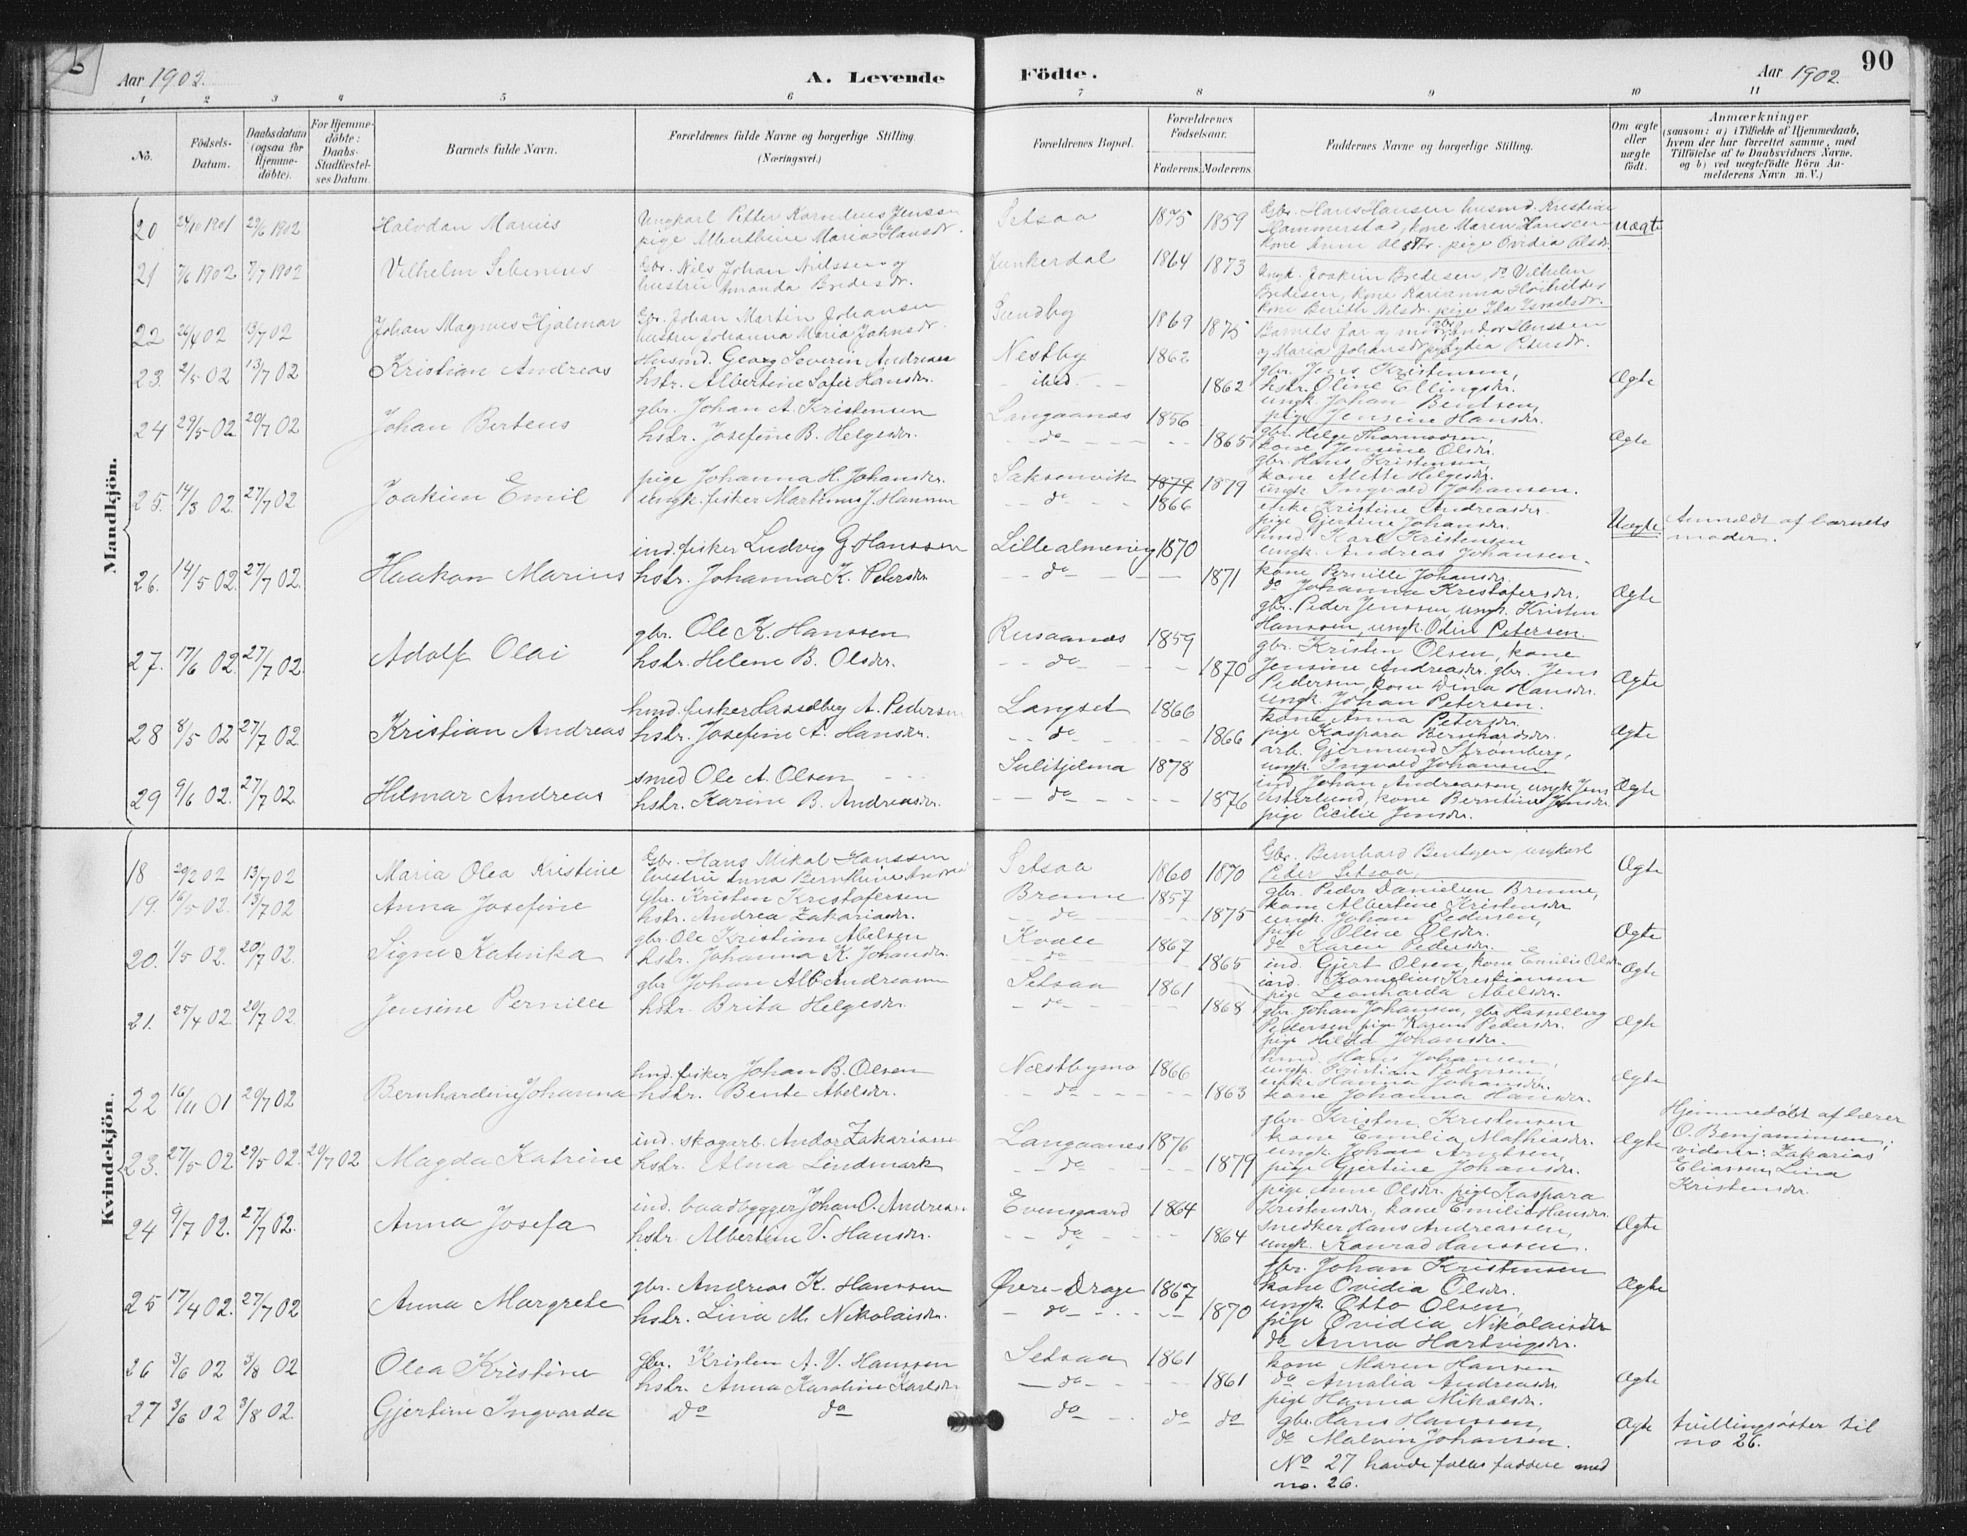 Aar 1902.
A. Levende Födte.
Aar 1902.
90
1 2 3 4 5 6 7 8 9 10 11
No.
Födsels-Datum.
Daabsdatum (ogsaa for Hjemme-döbte).
For Hjemme-döbte: Daabs-Stadfæstel-ses Datum.
Barnets fulde Navn.
Forældrenes fulde Navne og borgerlige Stilling. (Næringsvei.)
Forældrenes Bopæl.
Forældrenes Födselsaar.
Faderens. Moderens.
Faddernes Navne og borgerlige Stilling.
Om ægte eller uægte födt.
Anmærkninger
(saasom: a) i Tilfælde af Hjemmedaab, hvem der har forrettet samme, med Tilföielse af to Daabsvidners Navne, og b) ved uægtefödte Börn An-melderens Navn m. V.)
Mandkjön.
20 24/10 1901 29/6 1902 Halvdan Marius Ungkarl Petter Jenssen pige Alberthine Maria Hansdr. Setsaa 1875 1859 Gbr. Hans Hansen husmd. Hammerstad, kone Maren Hansen kone Anne pige Ovidia Olsdr. uægte
21 7/6 1902 7/7 1902 Vilhelm Gbr. Nils Johan Nilssen og hustru Amanda Bredesdr. Junkerdal 1864 1873 Ungk. Joakim Bredesen, do Vilhelm Bredesen, kone Karianna kone Berith Nilsdr. pige Ida Israelsdr.
22 26/4 02 13/7 02 Johan Magnus Hjalmar Gbr. Johan Martin Johansen hustru Johanna Maria Sundby 1869 1875 Barnets far og mor, og Maria Johansdr. Petersdr.
23. 2/5 02 13/7 02 Kristian Andreas Husmd. Georg Severin Andreas hstr. Albertine Sofie Hansdr. Nestby ibid. 1862 1862 gbr. Jens Kristensen, hstr. Oline Ellingsdr. ungk. Johan Bentsen, pige Jensine Hansdr. Ægte
24 29/5 02 20/7 02 Johan Bertens gbr. Johan A. Kristensen hstr. Josefine B. Helgesdr. Langaanes do 1856 1865 gbr. Helge kone Jensine Olsdr. gbr. Hans Kristensen, kone Mette Helgesdr. ungk. Ingvald Johansen. Ægte
25. 14/3 02. 27/7 02 Joakim Emil pige Johanna H. Johansdr. ungk. fisker Martinus J. Hansen Saksenvik do 1879 1866 1879 enke Kristine Andreasdr. pige Gjertine Johansdr. husmd. Karl Kristensen ungk. Andreas Johansen. Uægte Anmeldt af barnets moder.
26. 14/5 02. 27/7 02. Haakon Marius ind. fisker Ludvig G. Hanssen hstr. Johanna K. Petersdr. Lillealmening do 1870 1871 kone Pernille Johansdr. do Johanna Kristofersdr. gbr. Peder Jenssen, ungk. Kristen Hanssen, ungk. Odin Petersen. Ægte
27. 17/6 02. 27/7 02. Adolf Olai gbr. Ole K. Hanssen hstr. Helene B. Olsdr. Rusaanes do 1859 1870 gbr. Kristen Olsen, kone Jensine Andreasdr. gbr. Jens Pedersen, kone Dina Hansdr. ungk. Johan Petersen. Ægte
28 8/5 02 27/7 02. Kristian Andreas husmd. fisker Hasselberg A. Pedersen hstr. Josefine A. Hansdr. Langset do 1866 1866 kone Anna Petersdr. pige Kaspara Bernhardsdr. arb. Gjermund Strömberg, ungk. Ingvald Johansen Ægte
29 9/6 02. 27/7 02. Hilmar Andreas smed Ole A. Olsen hstr. Karine B. Andreasdr. Sulitjelma do 1878 1876 ind. Johan Andreassen, ungk. Jens kone Berntine Jensdr. pige Cicilie Jensdr. Ægte
Kvindekjön.
18 29/2 02 13/7 02 Maria Olea Kristine Gbr. Hans Mikal Hanssen hustru Anna Bernthine Setsaa 1860 1870 Gbr. Bernhard Bentzen, ungkarl Peter Setsaa, Ægte
19. 16/5 02. 13/7 02 Anna Josefine Gbr. Kristen Kristofersen hstr. Andrea Zakariasdr. Brenne do 1857 1875 gbr. Peder Danielsen Brenne, kone Albertine Kristensdr. ungk. Johan Pedersen, pige Oline Olsdr. do Karen Pedersdr. Ægte
20. 1/5 02. 20/7 02. Signe Katinka gbr. Ole Kristian Abelsen hstr. Johanna K. Johansdr. Kvale do 1867 1865 ind. Gjert Olsen, kone Emilie Olsdr. ind. Kornelius Kristiansen pige Leonharda Abelsdr. Ægte
21. 25/4 02. 20/7 02. Jensine Pernille gbr Johan Alb. Andreassen hstr. Brita Helgesdr. Setsaa do 1861 1868 gbr. Johan Johansen, gbr Hasselberg Pedersen, pige Karen Pedersdr. pige Hilda Johansdr. Ægte
22 16/11 01 20/7 02 Bernhardine Johanna husmd. fisker Johan B. Olsen hstr. Bente Abelsdr. Næstbymo do 1866 1863 husmd. Hans Johansen, ungk. Kristian Pedersen, enke Hanna Johansdr. kone Johanna Hansdr. Ægte
23. 27/5 02. 29/5 02. 20/7 02 Magda Katrine ind. skogarb. Andor Zakariassen hstr. Alma Lindmark Langaanes do 1876 1879 gbr. Kristen Kristensen kone Emilia Mathiasdr. ungk. Johan Arntsen, pige Gjertine Johansdr. Ægte Hjemmedöbt af lærer O. Benjaminsen; vidner: Zakarias Eliassen, Lina Kristensdr.
24 9/7 02. 27/7 02. Anna Josefa ind. baadbygger Johan O. Andreasen hstr. Albertine V. Hansdr. Evensgaard do 1864 1864 pige Anne Olsdr. pige Kaspara Kristensdr., kone Emilie Hansdr. snedker Hans Andreassen, ungk. Konrad Hanssen. Ægte
25 17/4 02. 27/7 02 Anna Margrete gbr. Andreas K. Hanssen hstr. Lina M. Nikolaisdr. Øvre-Drage do 1867 1870 gbr. Johan Kristensen kone Ovidia Olsdr. ungk. Otto Olsen, pige Ovidia Nikolaisdr do Anna Hartvigsdr. Ægte
26 3/6 02 3/8 02 Olea Kristine gbr. Kristen A. V. Hanssen hstr. Anna Karoline Karlsdr Setsaa do 1861 1861 kone Maren Hansen do Amalia Andreasdr. pige Hanna Mikalsdr. Ægte
27 3/6 02 3/8 02. Gjertine Ingvarda Do do do do do gbr. Hans Hanssen, do Malvin Johansen. No 27 havde fælles faddere med no. 26. Ægte tvillingsöster til no 26.